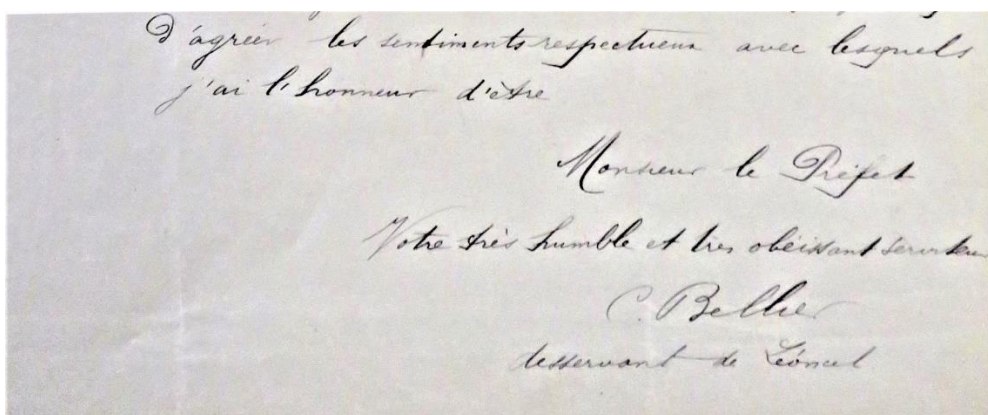 d'agréer les sentiments respectueux avec lesquels
j'ai l'honneur d'être
Monsieur le Préfet
Votre très humble et très obéissant serviteur
C. Bellier
desservant de Léoncel